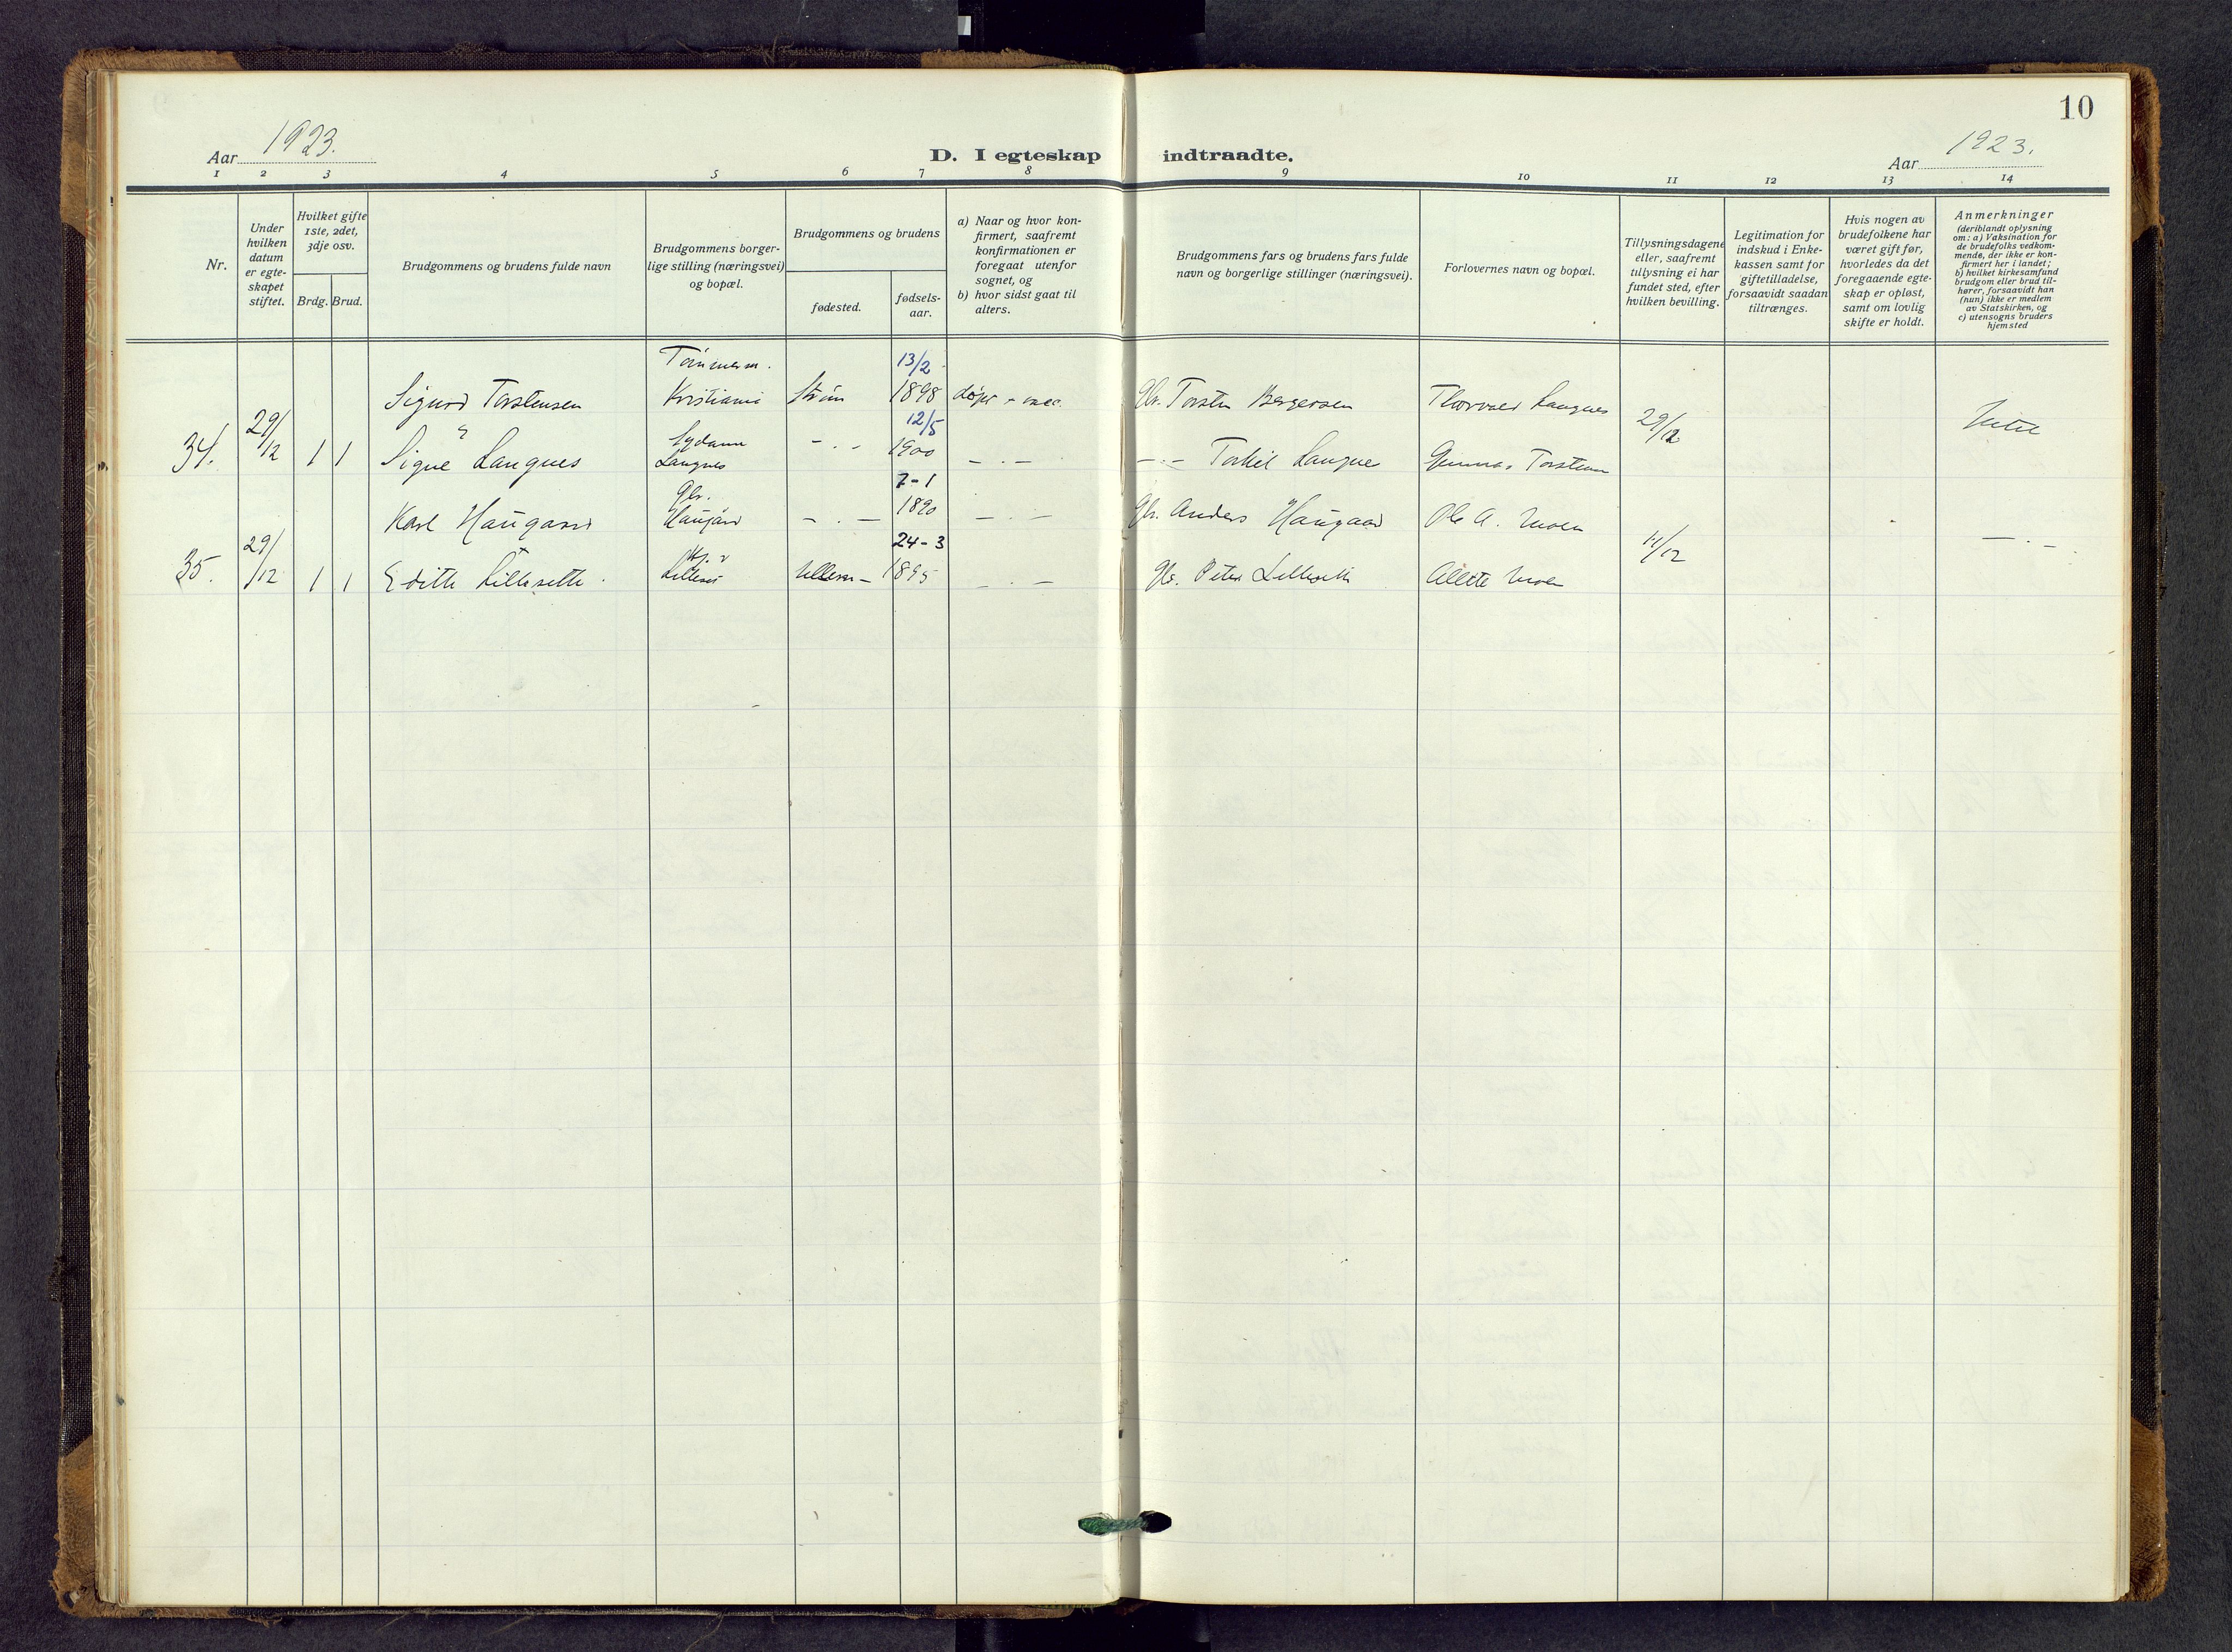 10
Aar 1923.
D. I egteskap indtraadte.
Aar 1923.
1 2 3 4 5 6 7 8 9 10 11 12 13 14
Nr.
Under hvilken datum er egte-skapet stiftet.
Hvilket gifte 1ste, 2det, 3dje osv.
Brdg. Brud.
Brudgommens og brudens fulde navn
Brudgommens borger-lige stilling (næringsvei) og bopæl.
Brudgommens og brudens
fødested.
fødsels-aar.
a) Naar og hvor kon-firmert, saafremt konfirmationen er foregaat utenfor sognet, og
b) hvor sidst gaat til alters.
Brudgommens fars og brudens fars fulde navn og borgerlige stillinger (næringsvei).
Forlovernes navn og bopæl.
Tillysningsdagene eller, saafremt tillysning ei har fundet sted, efter hvilken bevilling.
Legitimation for indskud i Enke-kassen samt for giftetilladelse, forsaavidt saadan tiltrænges.
Hvis nogen av brudefolkene har været gift før, hvorledes da det foregaaende egte-skap er opløst, samt om lovlig skifte er holdt.
Anmerkninger
(deriblandt oplysning om: a) Vaksination for de brudefolks vedkom-mende, der ikke er kon-firmert her i landet;
b) hvilket kirkesamfund brudgom eller brud til-hører, forsaavidt han (hun) ikke er medlem av Statskirken, og
c) utensogns bruders hjemsted
Tømmerm. 13/2
Sigurd Torstensen Kristiania Strøm 1898 Gbr. Torsten Bergersen Thorvald Langnes
34. 29/12 1 1 12/5 29/12
Signe Langnes Langnes - . - 1900 - . - - . - Torkil Langnes Gunnar Torstensen
Gbr. 7-1
Karl Haugaard Haugård - . - 1890 - . - Gbr. Anders Haugaard Ole A. Moen
35. 29/12 1 1 24-3 11/12 - . -
Edith Lilleseth 1895 - . - Gbr. Peter Lilleseth Alette Moen